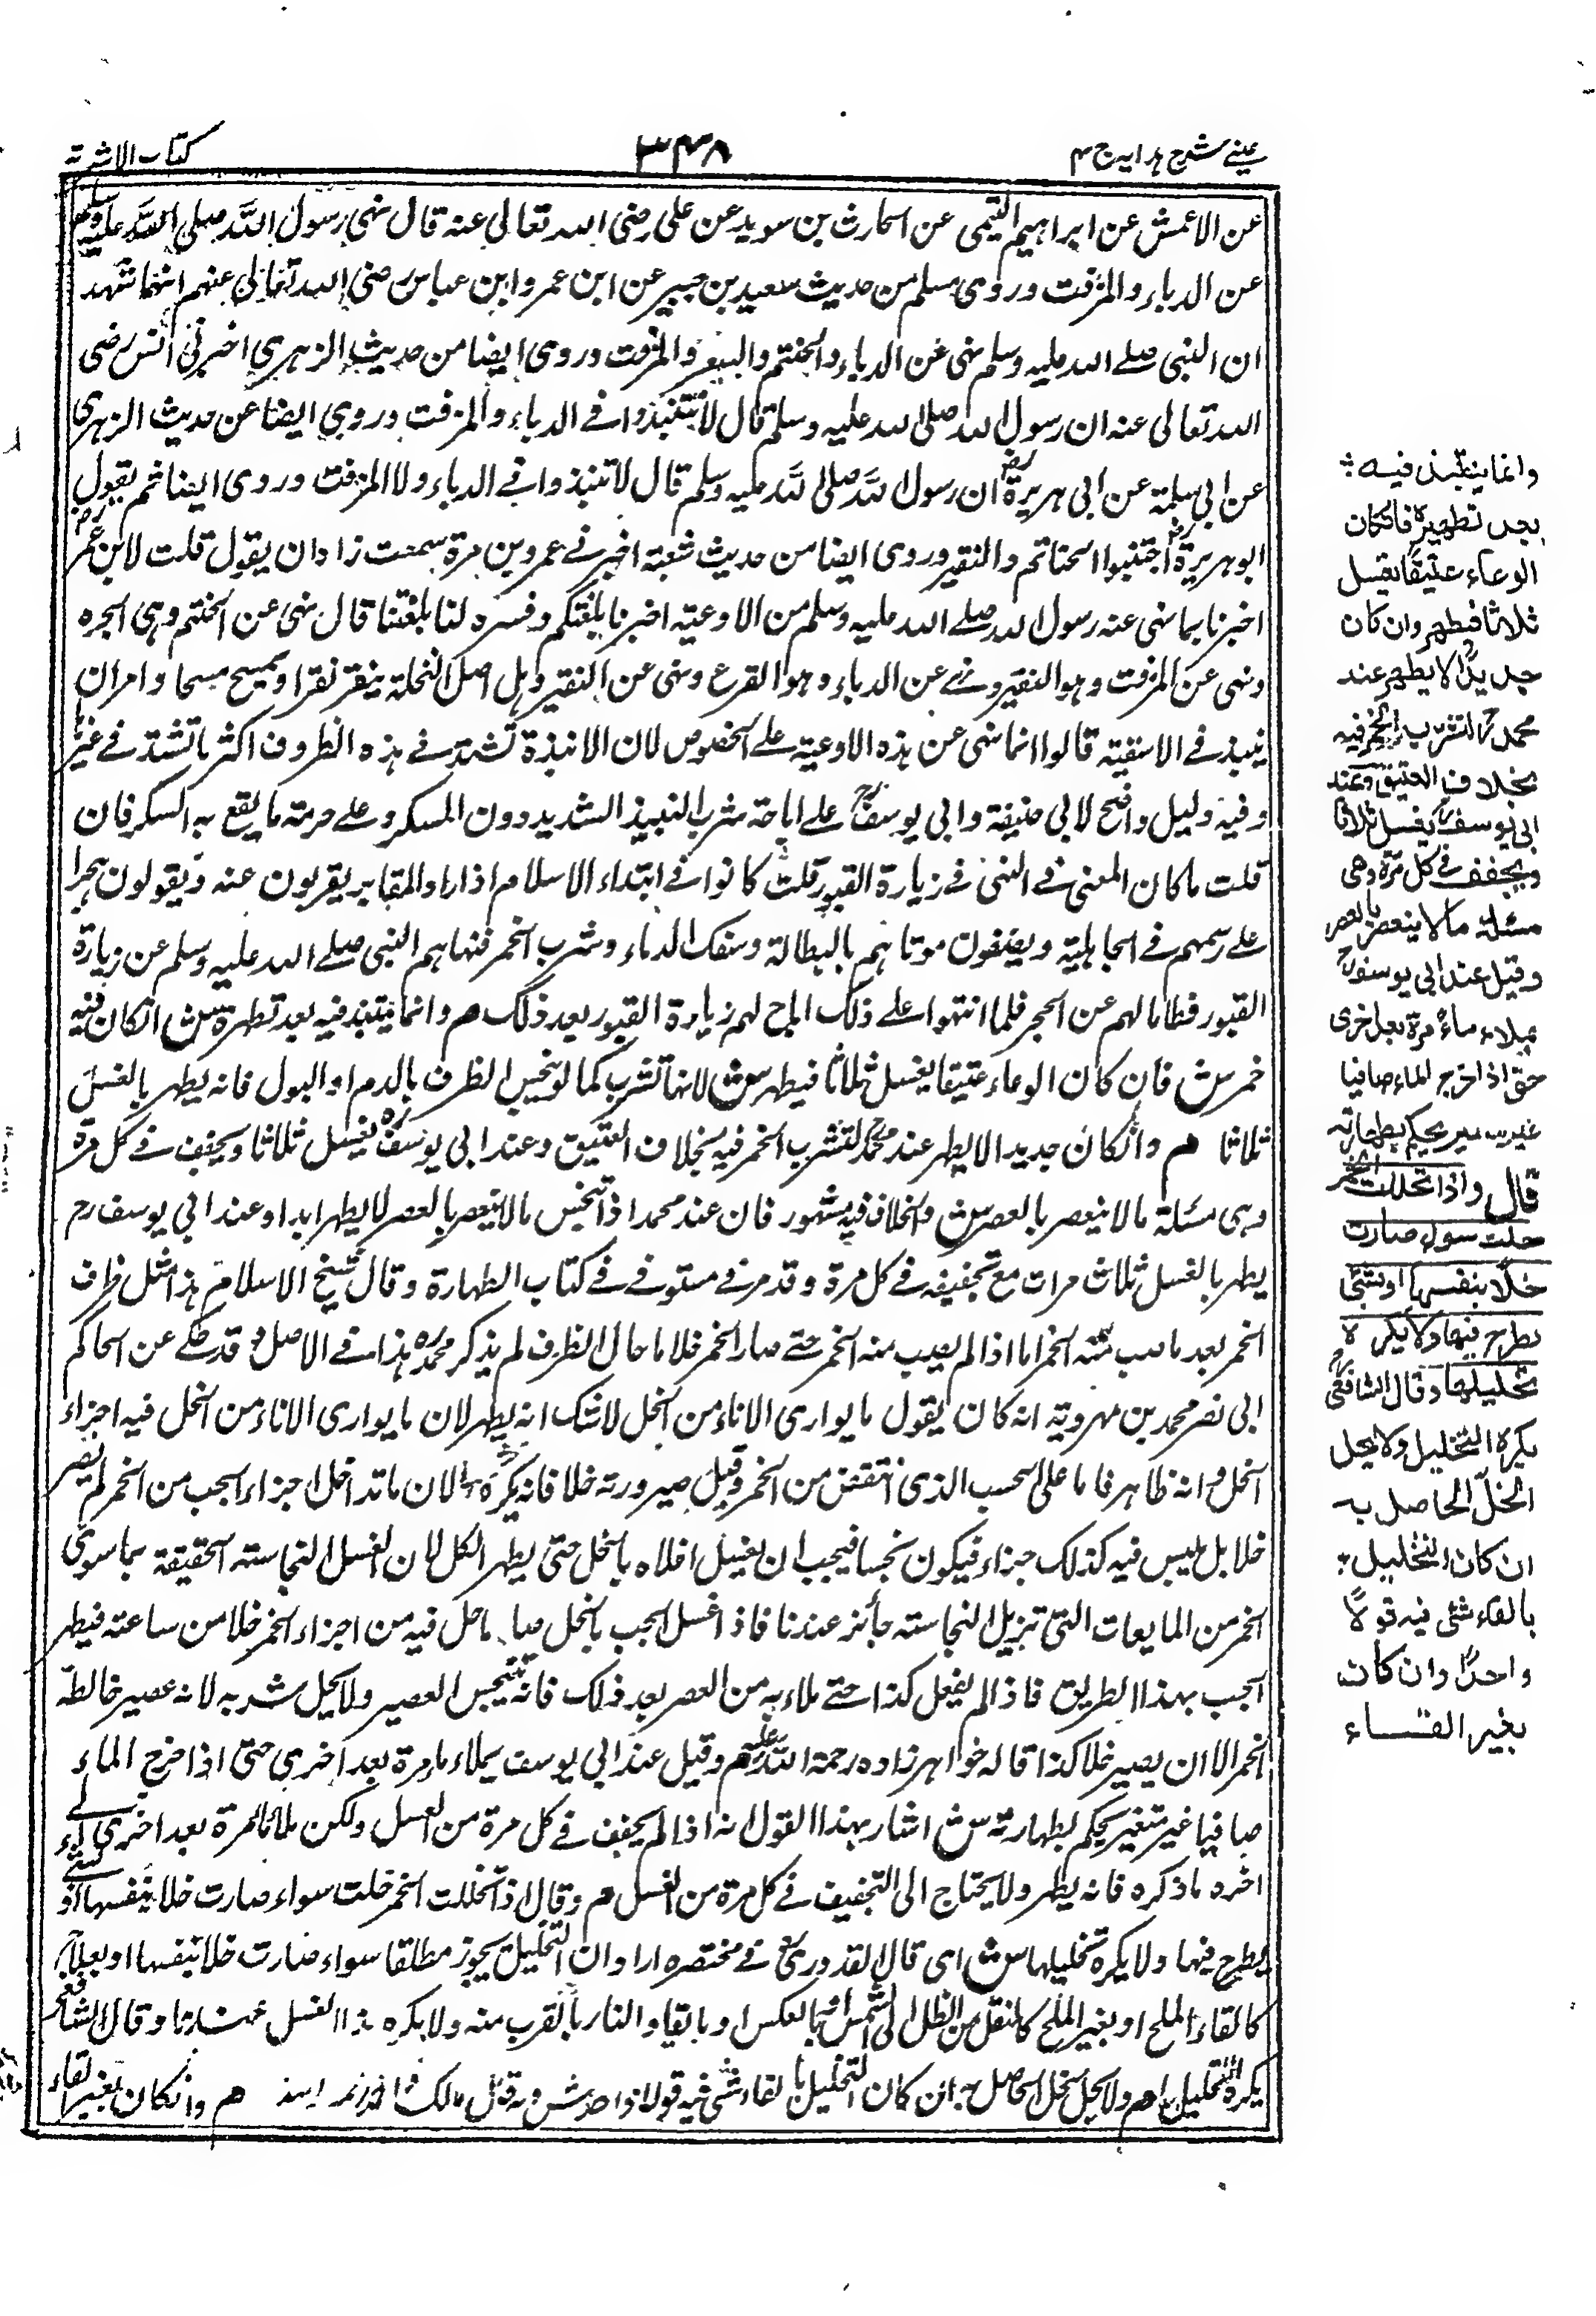 عینے شرح ہدایہ ج ۴
۳۴۸
کتاب الاشربة
عن الاعمش عن ابراہیم التیمی عن الحارث بن سوید عن علی رضی اللہ تعالی عنہ قال نہی رسول اللہ صلی اللہ علیہ وسلم
عن الدباء والمزفت وروی مسلم من حدیث سعید بن جبیر عن ابن عمر وابن عباس رضی اللہ تعالی عنہم انہما شہد
ان النبی صلے اللہ علیہ وسلم نہی عن الدباء والحنتم والنقیر والمزفت وروی ایضا من حدیث الزہری اخبرنی انس رضی
اللہ تعالی عنہ ان رسول اللہ صلی اللہ علیہ وسلم قال لا تنتبذوا فے الدباء والمزفت وروی ایضا عن حدیث الزہری
عن ابی سلمة عن ابی ہریرة رض ان رسول اللہ صلی اللہ علیہ وسلم قال لا تنبذوا فے الدباء ولا المزفت وروی ایضا ثم یقول
ابو ہریرة رض اجتنبوا الحناتم والنقیر وروی ایضا من حدیث شعبة اخبرنے عمرو بن مرة سمعت زاذان یقول قلت لابن عمر رض
اخبرنا بما نہی عنہ رسول اللہ صلے اللہ علیہ وسلم من الاوعیة اخبرنا بلغتکم وفسرہ لنا بلغتنا قال نہی عن الحنتم وہی الجرہ
ونہی عن المزفت وہو النقیر ونہے عن الدباء وہو القرع ونہی عن النقیر وہل اصل النخلة ینقر نقرا ویمسح مسحا وامر ان
ینبذ فے الاسقیة قالوا انما نہی عن ہذہ الاوعیة علے الخصوص لان الانبذة تشتد فے ہذہ الظروف اکثر ما تشتد فے غیرہا
وفیہ دلیل واضح لابی حنیفة وابی یوسف رح علے اباحة شرب النبیذ الشدید دون المسکر وعلے حرمة ما یقع بہ السکر فان
قلت ما کان المعنی فے النہی فے زیارة القبور قلت کانوا فے ابتداء الاسلام اذا راوا المقابر یقربون عنہ ویقولون ہجرا
علے رسمہم فے الجاہلیة ویصفون موتاہم بالبطالة وسفک الدماء وشرب الخمر فنہاہم النبی صلے اللہ علیہ وسلم عن زیارة
القبور فطاما لہم عن الہجر فلما انتہوا علے ذلک اباح لہم زیارة القبور بعد ذلک م وانما ینتبذ فیہ بعد تطہرہ ش ان کان فیہ
خمر ش فان کان الوعاء عتیقا یغسل ثلاثا فیطہر ش لانہا تشرب کما لو تنجس الظرف بالدم او البول فانہ یطہر بالغسل
ثلاثا م وان کان جدیدا لا یطہر عند محمد لتشرب الخمر فیہ بخلاف العتیق وعند ابی یوسف رہ یغسل ثلاثا ویجفف فے کل مرة
وہی مسئلة ما لا ینعصر بالعصر ش والخلاف فیہ مشہور فان عند محمد اذا تنجس ما لا ینعصر بالعصر لا یطہر ابدا وعند ابی یوسف رح
یطہر بالغسل ثلاث مرات مع تجفیفہ فے کل مرة وقد مر فے مستوفے فے کتاب الطہارة وقال شیخ الاسلام ہذا مثل ظرف
الخمر بعد ما صب منہ الخمر اما اذا لم یصب منہ الخمر حتے صار الخمر خلا ما حال الظرف لم یذکر محمد رہ ہذا فے الاصل وقد حکے عن الحاکم
ابی نصر محمد بن مہرویة انہ کان یقول ما یوازی الاناء من الخل لا شک انہ یطہر لان ما یوازی الاناء من الخل فیہ اجزاء
الخل وانہ ظاہر فاما علی الحب الذی انتقص من الخمر وقبل صیرورتہ خلا فانہ یکرہ لان ما تداخل اجزاء الحب من الخمر لم یصر
خلا بل یبس فیہ کذلک جزاء فیکون نجسا فیجب ان یغسل اعلاہ بالخل حتی یطہر الکل لان الغسل النجاستہ الحقیقة بما سوی
الخمر من المایعات التی تزیل النجاستہ جائز عندنا فاذا غسل الحب بالخل صار ما حل فیہ من اجزاء الخمر خلا من ساعتہ فیطہر
الحب بہذا الطریق فاذا لم یفعل کذا حتے ملاء بہ من العصر بعد ذلک فانہ تنجس العصیر ولا یحل شربہ لانہ عصیر خالطہ
الخمر الا ان یصیر خلا کذا قالہ خواہر زادہ رحمة اللہ علیہ م وقیل عند ابی یوسف یملاء ماء مرة بعد اخری حتی اذا خرج الماء
صافیا غیر متغیر یحکم بطہارتہ ش اشار بہذا القول انہ اذا لم یجفف فے کل مرة من الغسل ولکن ملاء ماء مرة بعد اخری الے
اخرہ ما ذکرہ فانہ یطہر ولا یحتاج الی التجفیف فے کل مرة من الغسل م وقال اذا تخللت الخمر حلت سواء صارت خلا بنفسہا او بشئے
یطرح فیہا ولا یکرہ تخلیلہا ش ای قال القدوری فے مختصرہ اراد ان التخلیل یجوز مطلقا سواء صارت خلا بنفسہا او بعلاج
کالقاء الملح او بغیر الملح کالنقل من الظل الی الشمس او بالعکس او بایقاد النار بالقرب منہ ولا یکرہ ہذا الغسل عندنا وقال الشافعی
یکرہ التخلیل م ولا یحل الخل الحاصل بہ ان کان التخلیل بالقاء شئی فیہ قولا واحدا ش وبہ قال مالک م وان کان بغیر القاء
وانما ینتبذ فیہ
بعد تطہیرہ فان کان
الوعاء عتیقًا یغسل
ثلاثا فیطہر وان کان
جدیدًا لا یطہر عند
محمد رح لتشرب الخمر فیہ
بخلاف العتیق وعند
ابی یوسف رح یغسل ثلاثا
ویجفف فے کل مرة وھی
مسئلة ما لا ینعصر بالعصر
وقیل عند ابی یوسف رح
یملاء ماءً مرة بعد اخری
حتی اذا خرج الماء صافیا
غیر متغیر یحکم بطہارتہ
قال واذا تخللت الخمر
حلت سواء صارت
خلًا بنفسہا او بشئ
یطرح فیہا ولا یکرہ
تخلیلہا وقال الشافعی رح
یکرہ التخلیل ولا یحل
الخل الحاصل بہ
ان کان التخلیل
بالقاء شئی فیہ قولًا
واحدًا وان کان
بغیر القاء